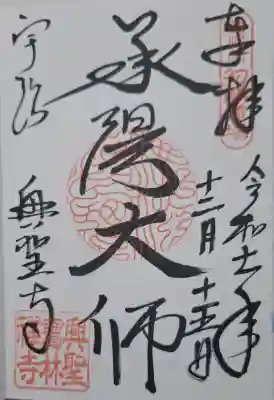 奉拝
令和七年
十二月十五日
承陽大師
宇治
興聖寺
興聖
寶林
禅寺